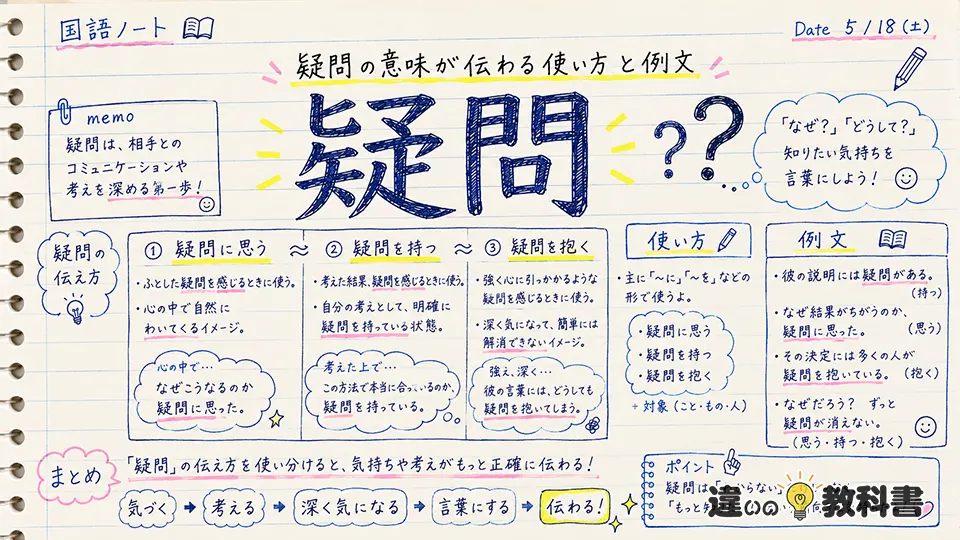 国語ノート
Date 5/18(土)
疑問の意味が伝わる使い方と例文
疑問
??
memo
疑問は、相手との
コミュニケーションや
考えを深める第一歩!
「なぜ?」「どうして?」
知りたい気持ちを
言葉にしよう!
疑問の
伝え方
① 疑問に思う ≈ ② 疑問を持つ ≈ ③ 疑問を抱く
・ふとした疑問を感じるときに使う。
・心の中で自然に
わいてくるイメージ。
心の中で…
なぜこうなるのか
疑問に思った。
・考えた結果、疑問を感じるときに使う。
・自分の考えとして、明確に
疑問を持っている状態。
考えた上で…
この方法で本当に合っているのか、
疑問を持っている。
・強く心に引っかかるような
疑問を感じるときに使う。
・深く気になって、簡単には
解消できないイメージ。
強え、深く…
彼の言葉には、どうしても
疑問を抱いてしまう。
使い方
・主に「〜に」「〜を」などの
形で使うよ。
・疑問に思う
・疑問を持つ
・疑問を抱く
+ 対象(こと・もの・人)
例文
・彼の説明には疑問がある。
(持つ)
・なぜ結果がちがうのか、
疑問に思った。 (思う)
・その決定には多くの人が
疑問を抱いている。 (抱く)
・なぜだろう? ずっと
疑問が消えない。
(思う・持つ・抱く)
まとめ
「疑問」の伝え方を使い分けると、気持ちや考えがもっと正確に伝わる!
気づく ➡ 考える ➡ 深く気になる ➡ 言葉にする ➡ 伝わる!
ポイント
疑問は「 らない」
「もっと
違いの教科書